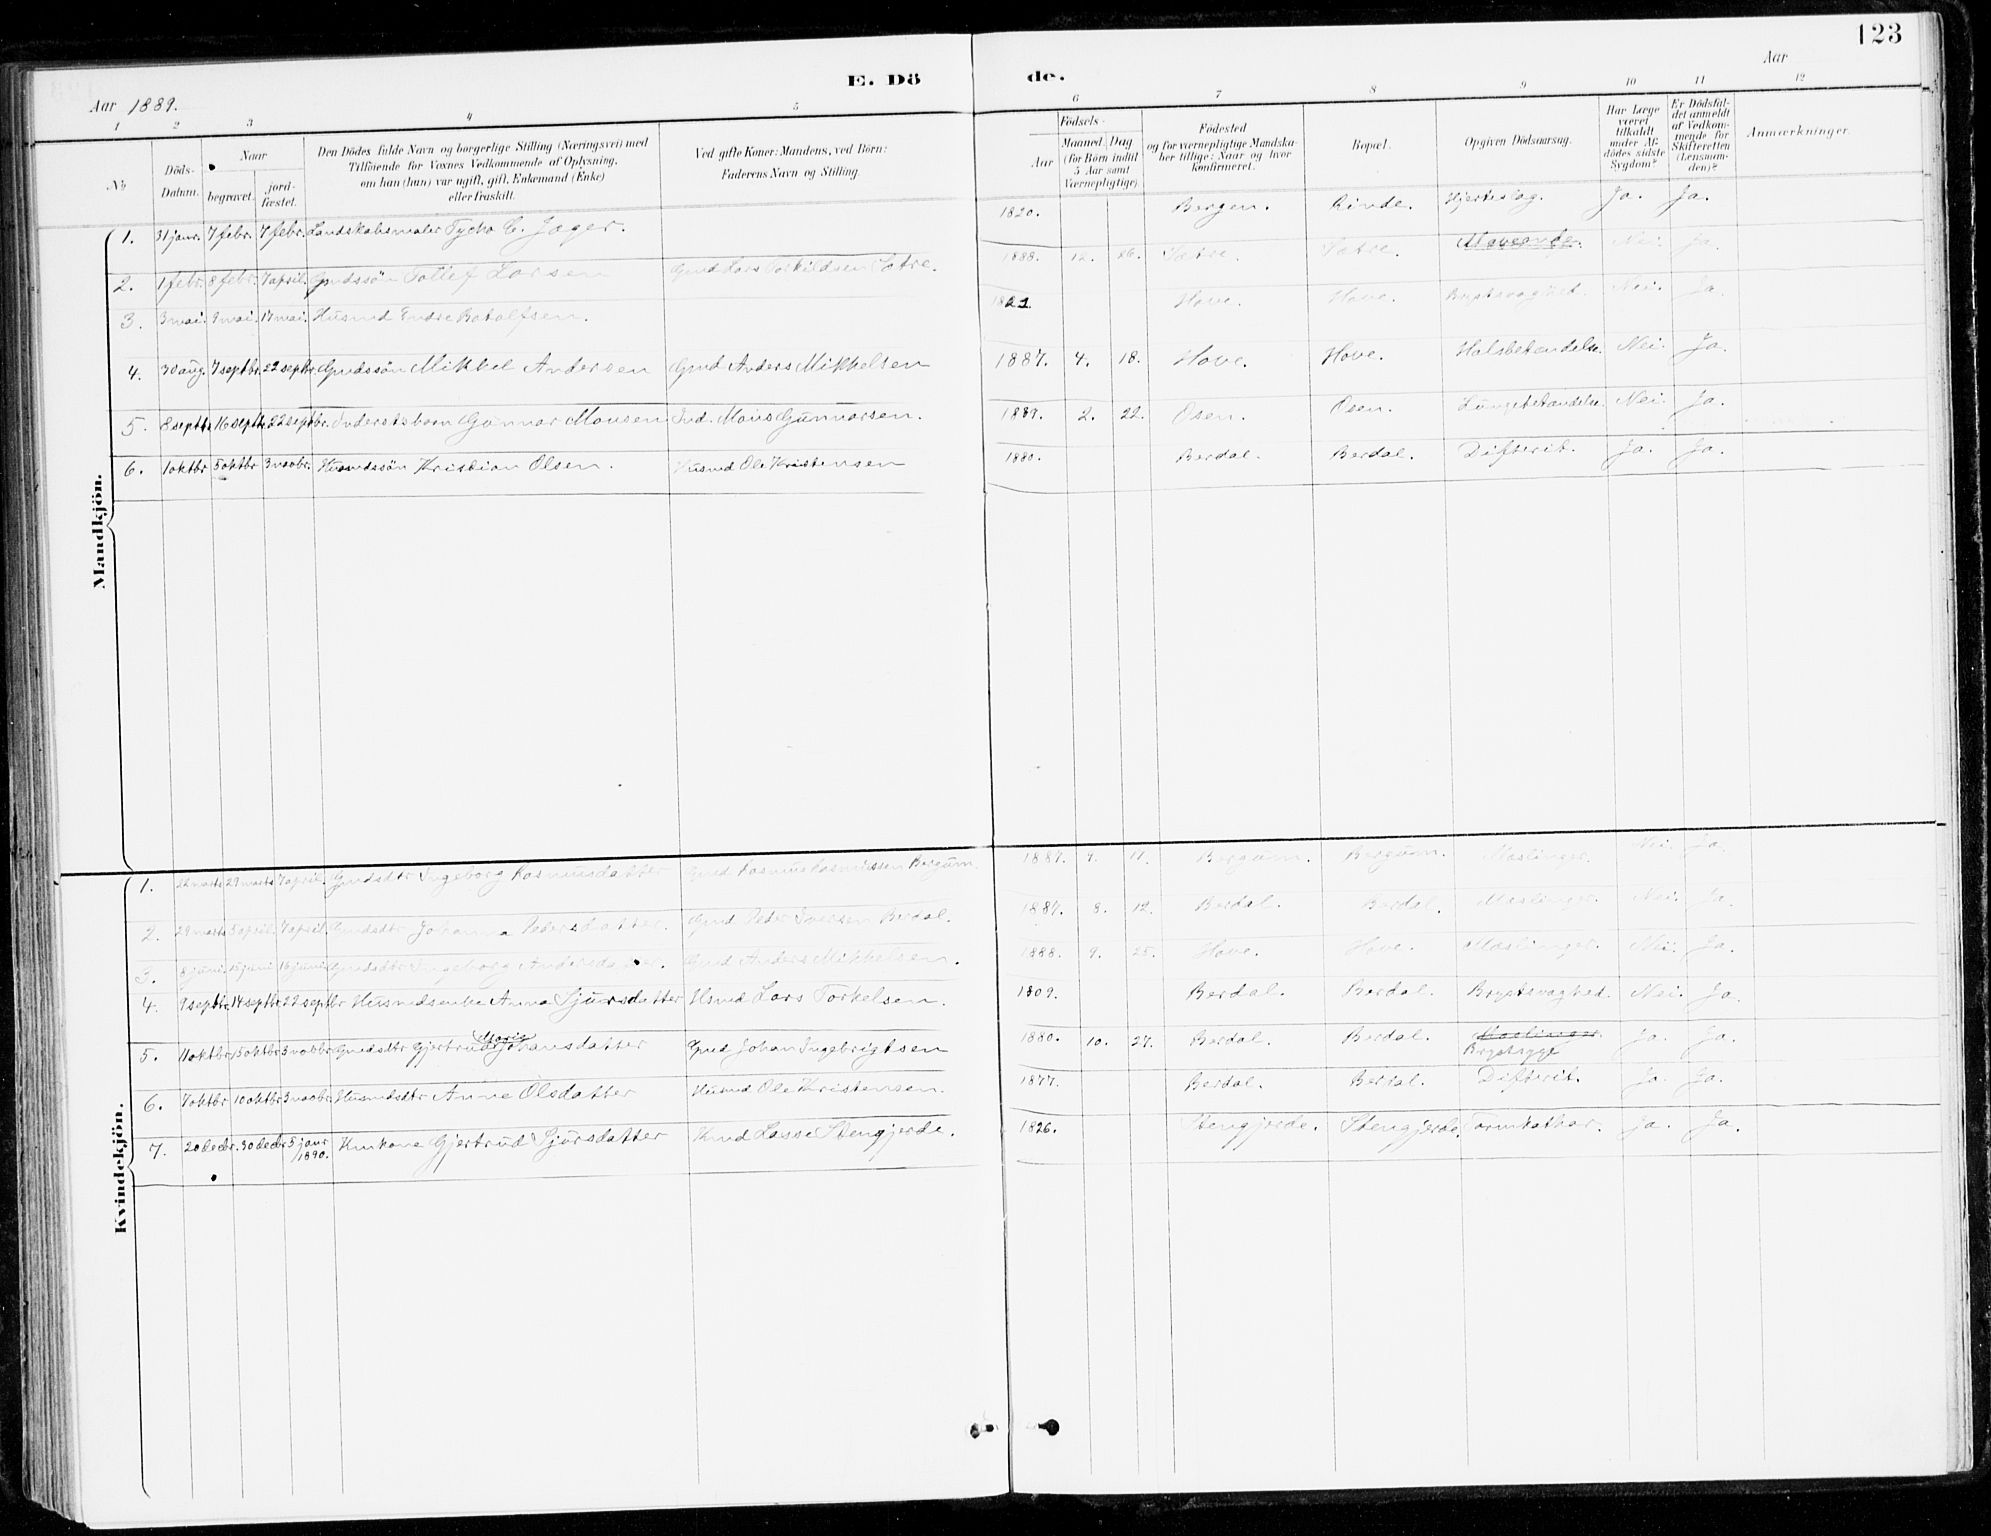 123
E. Dö de.
Aar 1889. Aar
1 2 3 4 5 6 7 8 9 10 11 12
№ Döds-Datum. Naar begravet. jord-fæstet. Den Dödes fulde Navn og borgerlige Stilling (Næringsvei) med Tilföiende for Voxnes Vedkommende af Oplysning, om han (hun) var ugift, gift, Enkemand (Enke) eller fraskilt. Ved gifte Koner: Mandens, ved Börn: Faderens Navn og Stilling. Födsels- Aar Maaned. Dag (for Börn indtil 5 Aar samt Værnepligtige) Födested og for værnepligtige Mandska-ber tillige: Naar og hvor konfirmeret. Bopæl. Opgiven Dödsaarsag. Har Læge været tilkaldt under Af-dödes sidste Sygdom? Er Dödsfal-det anmeldt af Vedkom-mende for Skifteretten (Lensman-den)? Anmærkninger.
Mandkjön.
1. 31 janr. 7 febr. 7 febr. Landskabsmaler Tycho C. Jæger. 1820. Bergen. Rinde. Hjerteslag. Ja. Ja.
2. 1 febr. 8 febr. 7 april. Gmdssön Tollef Larsen Gmd Lars Torkildsen Sætre. 1888. 12. 26. Sætre. Sætre. Nei. Ja.
3. 3 mai. 9 mai. 17 mai. Husmd Endre Botolfsen. Hove. Hove. Brystsvaghed. Nei. Ja.
4. 30 aug. 7 septbr. 22 septbr. Gmdssön Mikkel Andersen Gmd Anders Mikkelsen 1887. 4. 18. Hove. Hove. Halsbetændelse. Nei. Ja.
5. 8 septbr. 16 septbr. 22 septbr. Inderstsbarn Gunnar Monsen Ind. Mons Gunnarsen. 1889. 2. 22. Osen. Osen. Lungebetændelse. Nei. Ja.
6. 1 oktbr 5 oktbr 3 novbr. Husmdssön Kristian Olsen. Husmd Ole Kristensen 1880. Berdal. Berdal. Difterit. Ja. Ja.
Kvindekjön.
1. 22 marts 29 marts 7 april. Gmdsdtr Ingeborg Rasmusdatter Gmd Rasmus Rasmussen Bergum. 1887. 9. 11. Bergum. Bergum. Mæslinger. Nei. Ja.
2. 29 marts 5 april. 7 april. Gmdsdtr Johanna Pedersdatter. Gmd Peder Iversen Berdal. 1887. 8. 12. Berdal. Berdal. Mæslinger. Nei. Ja.
3. 8 juni. 15 juni 16 juni Gmdsdtr Ingeborg Andersdatter. Gmd Anders Mikkelsen. 1888. 9. 25. Hove. Hove. Mæslinger. Nei. Ja.
4. 9 septbr. 14 septbr. 22 septbr Husmdsenke Anna Sjursdatter Husmd Lars Torkelsen. 1809. Berdal. Berdal. Brystsvaghed. Nei. Ja.
5. 11 oktbr. 15 oktbr. 3 novbr. Gmdsdtr Gjertrud Marie Johansdatter Gmd Johan Ingebrigtsen 1880. 10. 27. Berdal. Berdal. Mæslinger. Brystsyge Ja. Ja.
6. 7 oktbr. 10 oktbr. 3 novbr. Husmdsdtr Anne Olsdatter Husmd Ole Kristensen. 1877. Berdal. Berdal. Difterit. Ja. Ja.
7. 20 decbr. 30 decbr. 5 janr 1890. Kmkone Gjertrud Sjursdatter Kmd Lasse Stengjerde. 1826. Stengjerde. Stengjerde. Tarmkathar. Ja. Ja.